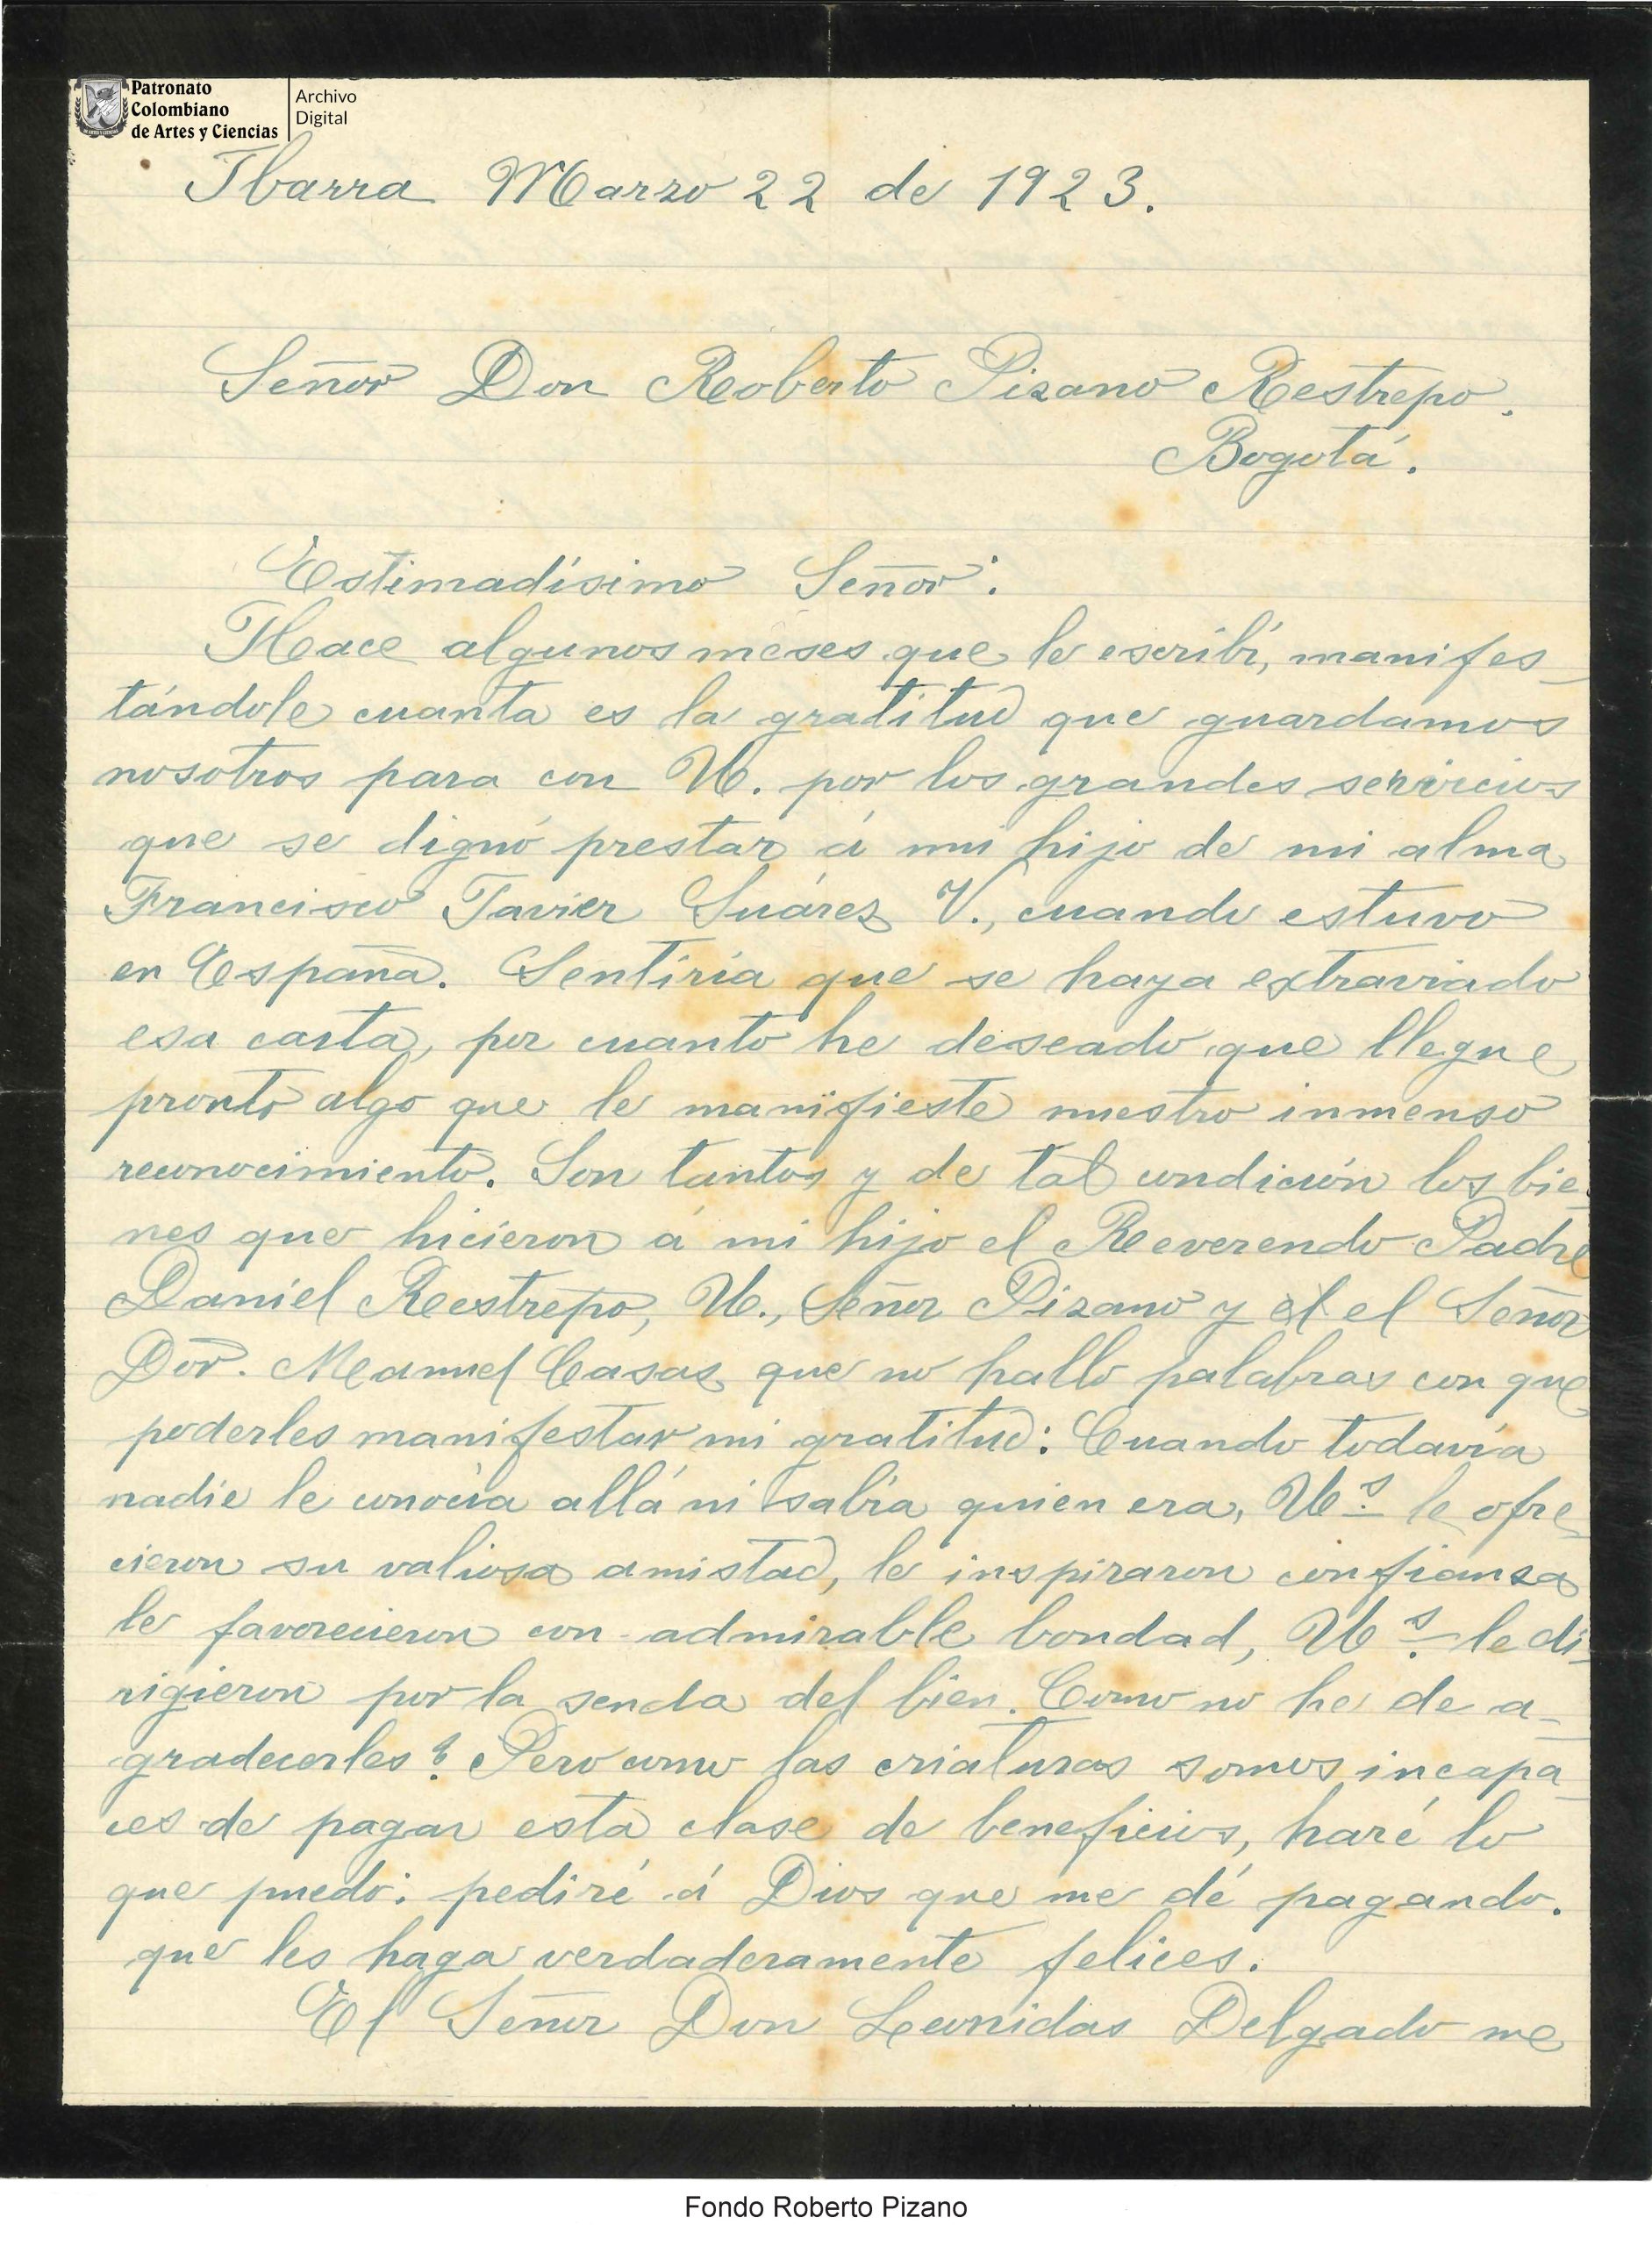 Patronato
Colombiano
de Artes y Ciencias
Archivo
Digital
Ibarra Marzo 22 de 1923.
Señor Don Roberto Pizano Restrepo.
Bogotá.
Estimadísimo Señor:
Hace algunos meses que le escribí, manifes-
tándole cuanta es la gratitud que guardamos
nosotros para con U. por los grandes servicios
que se dignó prestar á mi hijo de mi alma
Francisco Javier Suárez V., cuando estuvo
en España. Sentiría que se haya extraviado
esa carta, por cuanto he deseado que llegue
pronto algo que le manifieste nuestro inmenso
reconocimiento. Son tantos y de tal condición los bie-
nes que hicieron á mi hijo el Reverendo Padre
Daniel Restrepo, U., Señor Pizano y el el Señor
Dor. Manuel Casas que no hallo palabras con que
poderles manifestar mi gratitud: Cuando todavía
nadie le conocía allá ni sabía quien era, Us. le ofre-
cieron su valiosa amistad, le inspiraron confianza
le favorecieron con admirable bondad, Us. le di-
rigieron por la senda del bien. Como no he de a-
gradecerles? Pero como las criaturas somos incapa-
ces de pagar esta clase de beneficios, haré lo
que puedo: pediré á Dios que me dé pagando.
que les haga verdaderamente felices.
El Señor Don Leonidas Delgado me
Fondo Roberto Pizano